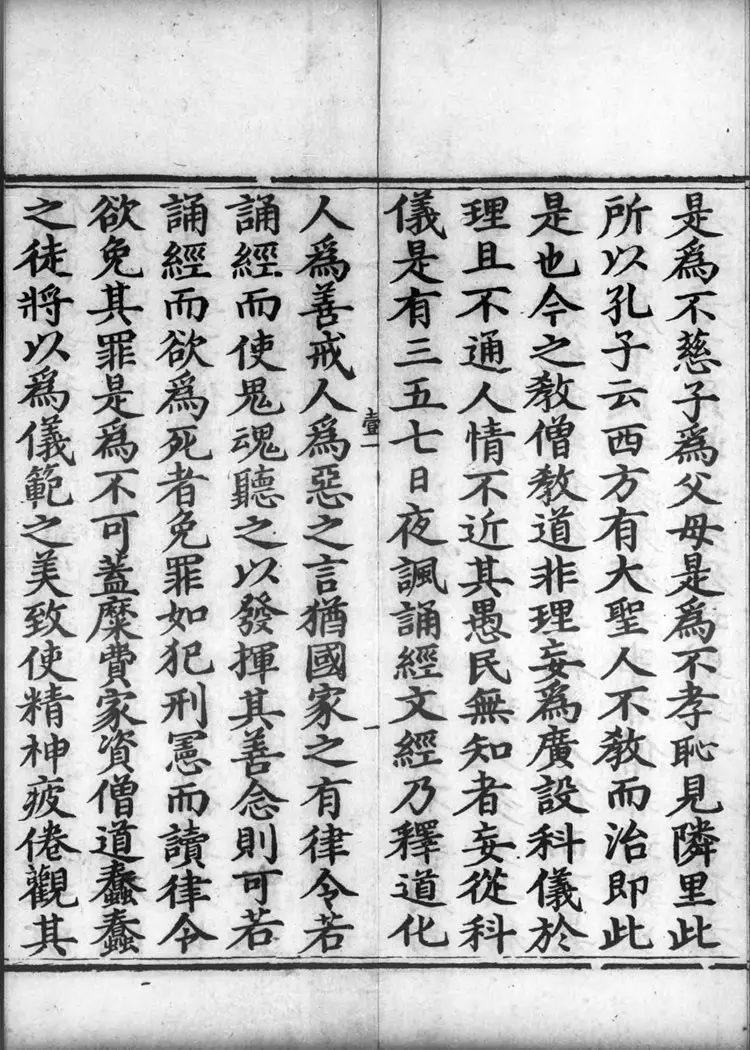 是爲不慈子爲父母是爲不孝恥見隣里此
所以孔子云西方有大聖人不教而治即此
是也今之教僧教道非理妄爲廣設科儀於
理且不通人情不近其愚民無知者妄從科
儀是有三五七日夜諷誦經文經乃釋道化
壹一
人爲善戒人爲惡之言猶國家之有律令若
誦經而使鬼魂聽之以發揮其善念則可若
誦經而欲爲死者免罪如犯刑憲而讀律令
欲免其罪是爲不可蓋糜費家資僧道蠢蠢
之徒將以爲儀範之美致使精神疲倦觀其